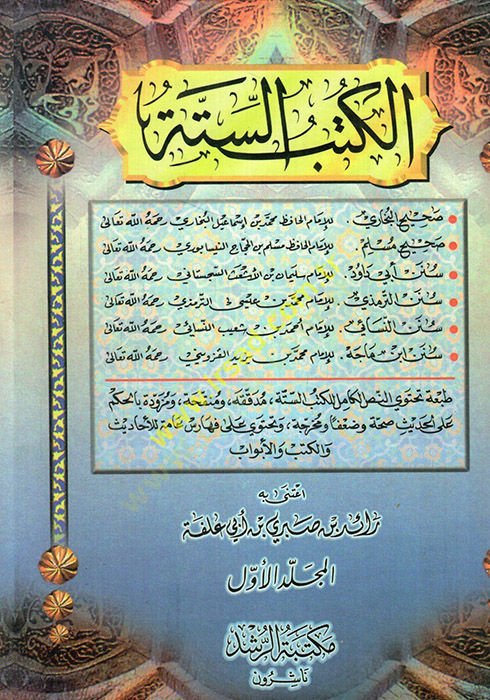 الكتب الستة
صحيح البخاري . للإمام الحافظ محمد بن إسماعيل البخاري رحمه الله تعالى
صحيح مسلم . للإمام الحافظ مسلم بن الحجاج النيسابوري رحمه الله تعالى
سنن أبي داود . للإمام سليمان بن الأشعث السجستاني رحمه الله تعالى
سنن الترمذي . للإمام محمد بن عيسى الترمذي رحمه الله تعالى
سنن النسائي . للإمام أحمد بن شعيب النسائي رحمه الله تعالى
سنن ابن ماجة . للإمام محمد بن يزيد القزويني رحمه الله تعالى
طبعة تحتوي النص الكامل للكتب الستة، مدققة، ومنقحة، ومزودة بالحكم
على الحديث صحة وضعفا ومخرجة، وتحتوي على فهارس عامة للأحاديث
والكتب والأبواب
اعتنى به
رائد بن صبري بن أبي علفة
المجلد الأول
مكتبة الرشد
ناشرون